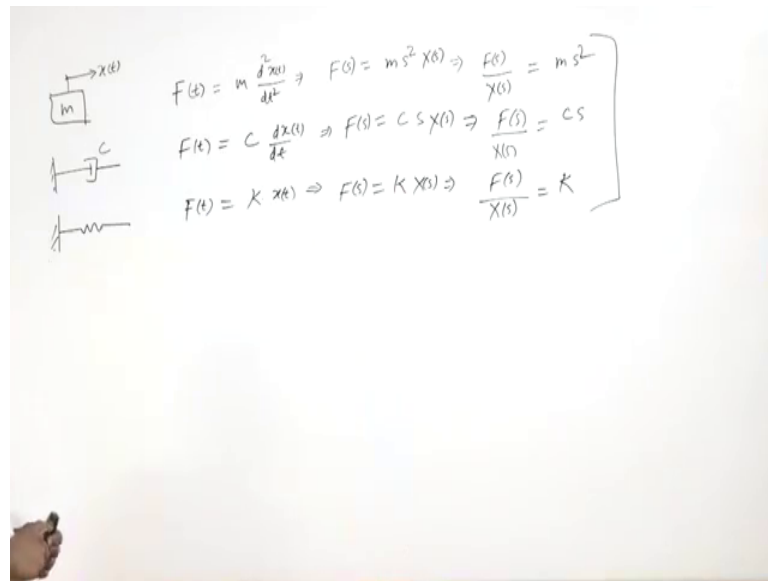 x(t)
m
F(t) = m d²x(t)/dt² ⇒ F(s) = m s² X(s) ⇒ F(s)/X(s) = m s²
C
F(t) = C dx(t)/dt ⇒ F(s) = C s X(s) ⇒ F(s)/X(s) = C s
F(t) = K x(t) ⇒ F(s) = K X(s) ⇒ F(s)/X(s) = K